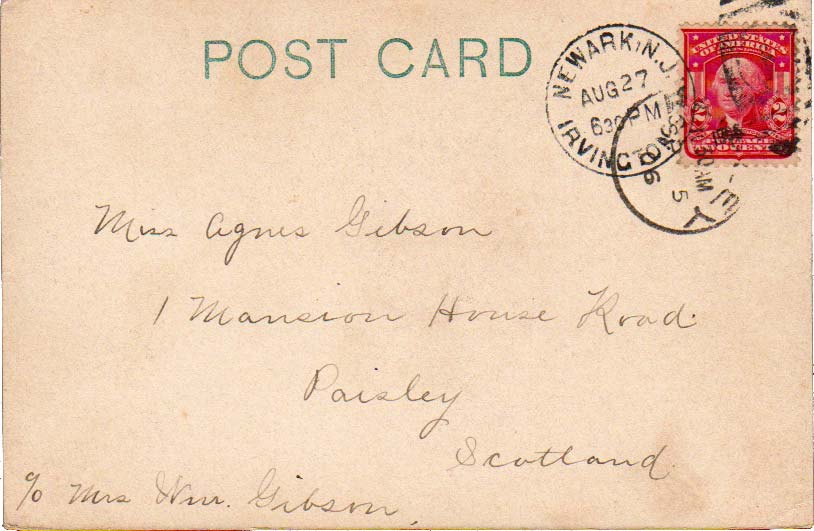 POST CARD
NEWARK, N.J.
AUG 27
630 PM
IRVINGTON
UNITED STATES
OF AMERICA
2 2
TWO CENTS
Miss Agnes Gibson
1 Mansion House Road.
Paisley
Scotland.
c/o Mrs Wm. Gibson,